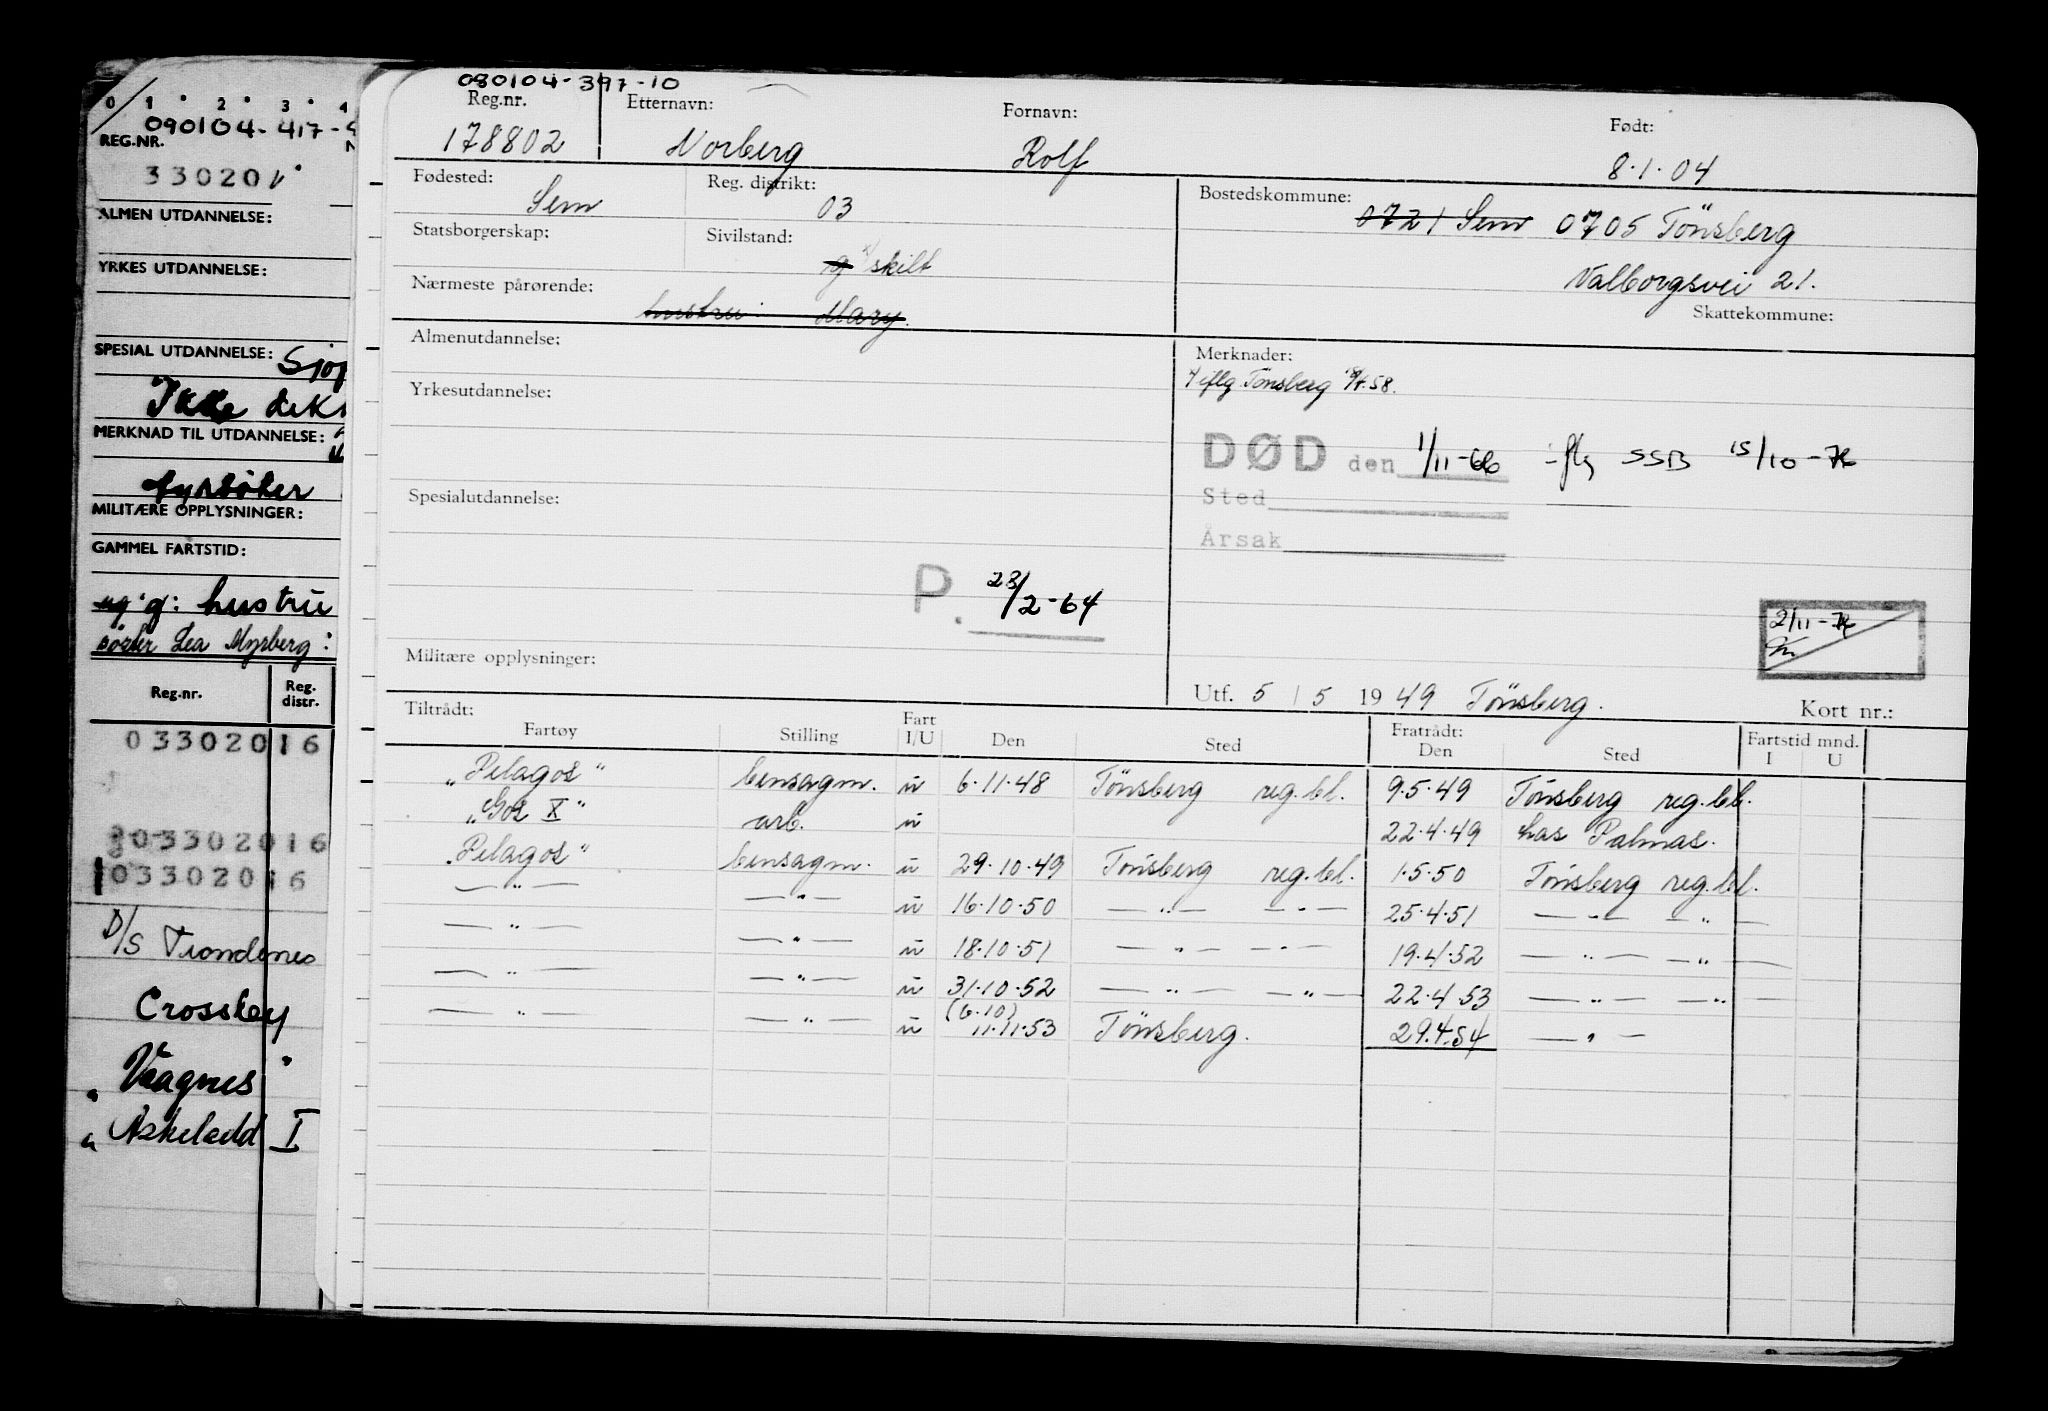 0 1 2 3 4
090104-417-
REG.NR.
330201
ALMEN UTDANNELSE:
YRKES UTDANNELSE:
SPESIAL UTDANNELSE:
Ikke
MERKNAD TIL UTDANNELSE:
fyrbøter
MILITÆRE OPPLYSNINGER:
GAMMEL FARTSTID:
ug. g: hustru
Lea Myrberg:
Reg.nr. Reg. distr.
03302016
03302016
03302016
D/S Trondenes
Crossby
"Vaagnes"
" Askeladd I
080104-397-10
Reg.nr. Etternavn: Fornavn: Født:
178802 Norberg Rolf 8.1.04
Fødested: Reg. distrikt: Bostedskommune:
Sem 03 0721 Sem 0705 Tönsberg
Statsborgerskap: Sivilstand:
g skilt
Valborgsvei 21.
Nærmeste pårørende: Skattekommune:
hustru: Mary.
Almenutdannelse: Merknader:
iflg. Tönsberg
Yrkesutdannelse:
DØD den 1/11-66 iflg SSB 15/10-
Spesialutdannelse: Sted
Årsak
P. 28/2-64
2/11-
Militære opplysninger:
Utf. 5 / 5 1949 Tönsberg. Kort nr.:
Tiltrådt: Fratrådt: Fartstid mnd.
Fartøy Stilling Fart I/U Den Sted Den Sted I U
"Pelagos" censagm. u 6.11.48 Tönsberg reg.bl. 9.5.49 Tönsberg reg.bl.
"Gos X" arb. u 22.4.49 Las Palmas.
"Pelagos" censagm. u 29.10.49 Tönsberg reg.bl. 1.5.50 Tönsberg reg.bl.
— " — — " — u 16.10.50 — " — — " — 25.4.51 — " — — " —
— " — — " — u 18.10.51 — " — — " — 19.4.52 — " — — " —
— " — — " — u 31.10.52 — " — — " — 22.4.53 — " — — " —
— " — — " — u (6.10) 11.11.53 Tönsberg. 29.4.54 — " —